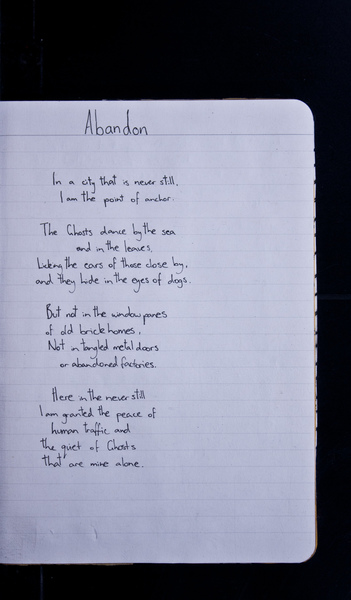 Abandon
In a city that is never still,
I am the point of anchor.
The Ghosts dance by the sea
and in the leaves,
Licking the ears of those close by,
and they hide in the eyes of dogs.
But not in the window panes
of old brick homes,
Not in tangled metal doors
or abandoned factories.
Here in the never still
I am granted the peace of
human traffic and
the quiet of Ghosts
that are mine alone.